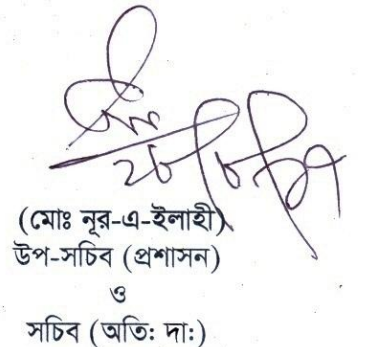 (মোঃ নূর-এ-ইলাহী)
উপ-সচিব (প্রশাসন)
ও
সচিব (অতি: দা:)